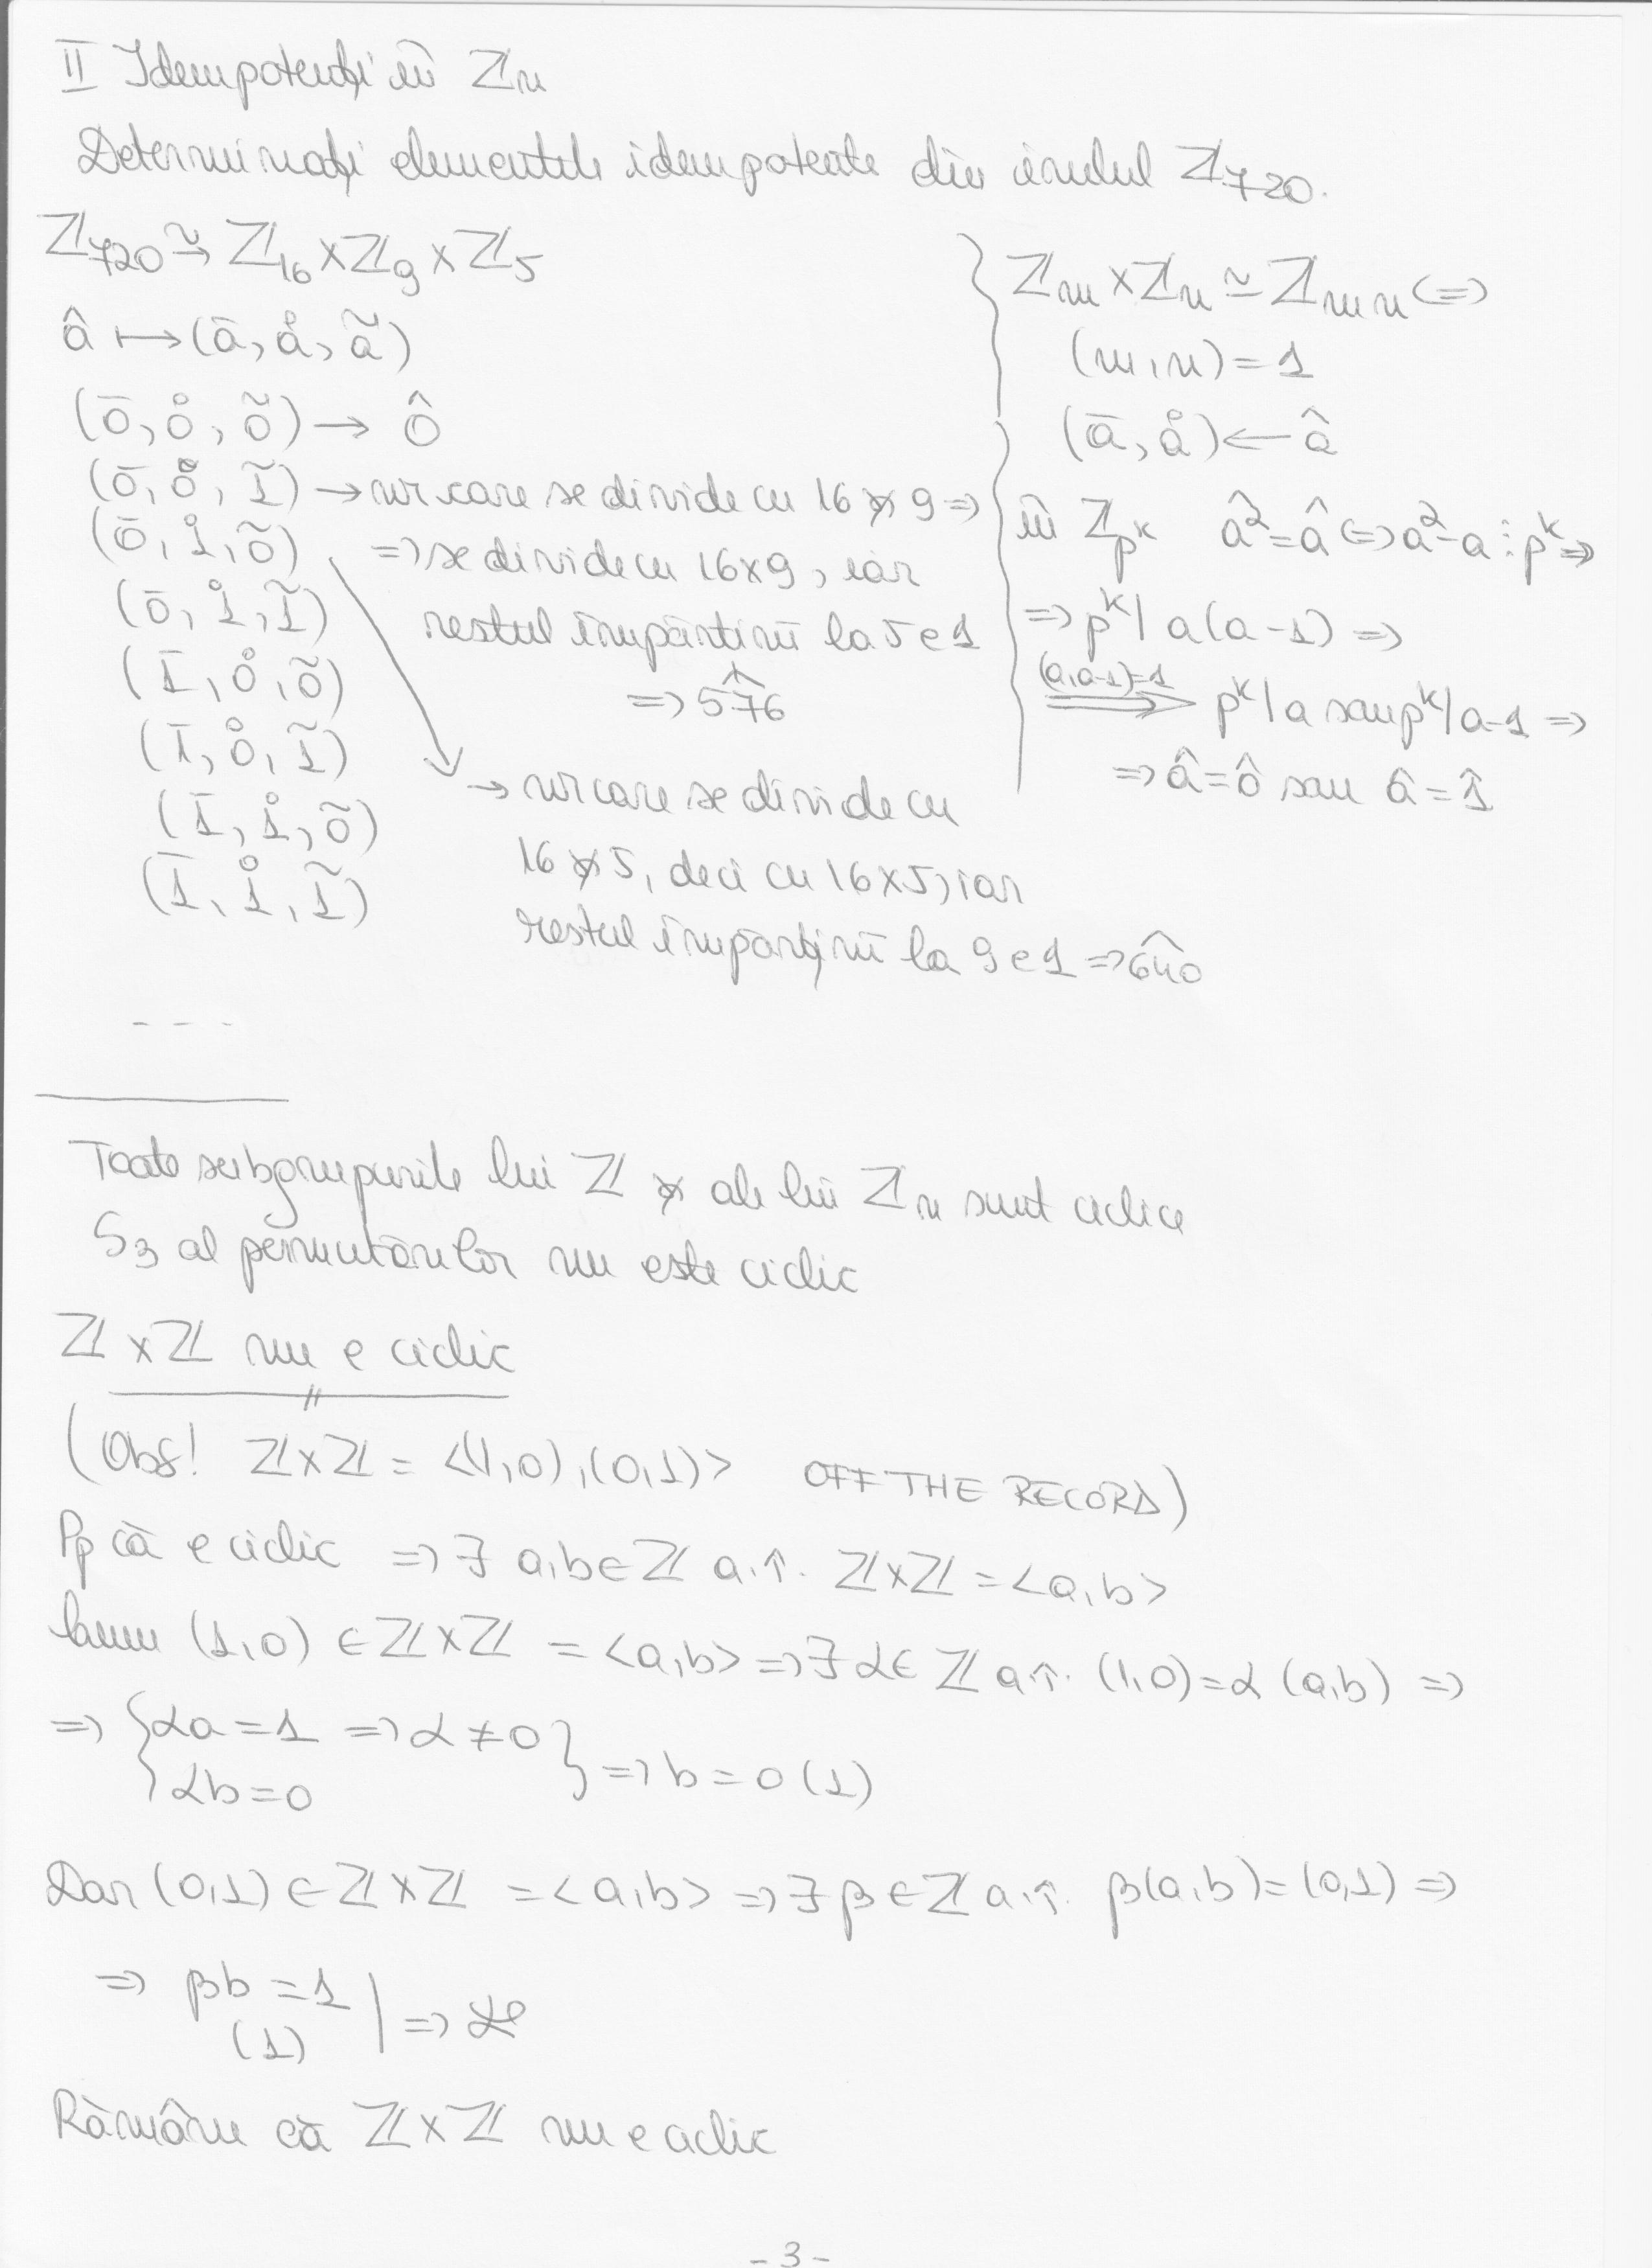 II Idempotenți în ℤn
Determinați elementele idempotente din inelul ℤ720.
ℤ720 ≃ ℤ16×ℤ9×ℤ5
â ↦ (ā, å, ã)
(0̄, 0̊, 0̃) → 0̂
(0̄, 0̊, 1̃) → nr care se divide cu 16 și 9 =>
(0̄, 1̊, 0̃) => se divide cu 16×9, iar
(0̄, 1̊, 1̃) restul împărțirii la 5 e 1
(1̄, 0̊, 0̃) => 576̂
(1̄, 0̊, 1̃)
(1̄, 1̊, 0̃) → nr care se divide cu
(1̄, 1̊, 1̃) 16 și 5, deci cu 16×5, iar
restul împărțirii la 9 e 1 => 640̂
- - -
ℤm×ℤn ≃ ℤmn <=>
(m,n)=1
(ā, å) ← â
în ℤp^k â²=â <=> a²-a ⋮ p^k =>
=> p^k | a(a-1) =>
(a,a-1)=1 => p^k | a sau p^k | a-1 =>
=> â=0̂ sau â=1̂
Toate subgrupurile lui ℤ și ale lui ℤn sunt ciclice
S3 al permutărilor nu este ciclic
ℤ×ℤ nu e ciclic
(Obs! ℤ×ℤ = <(1,0),(0,1)> OFF THE RECORD)
Pp că e ciclic => ∃ a,b∈ℤ a.î. ℤ×ℤ = <a,b>
Luăm (1,0) ∈ ℤ×ℤ = <a,b> => ∃ α∈ℤ a.î. (1,0)=α(a,b) =>
=> { αa=1 => α≠0 } => b=0 (1)
αb=0
Dar (0,1) ∈ ℤ×ℤ = <a,b> => ∃ β∈ℤ a.î. β(a,b)=(0,1) =>
=> βb=1
(1) | =>
Rămâne că ℤ×ℤ nu e ciclic
- 3 -